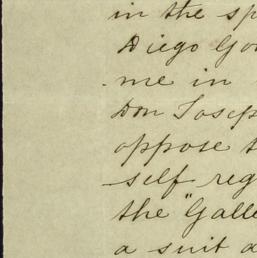 in the sp
Diego Go
me in
Don Josep
oppose t
self reg
the "Galle
a suit a